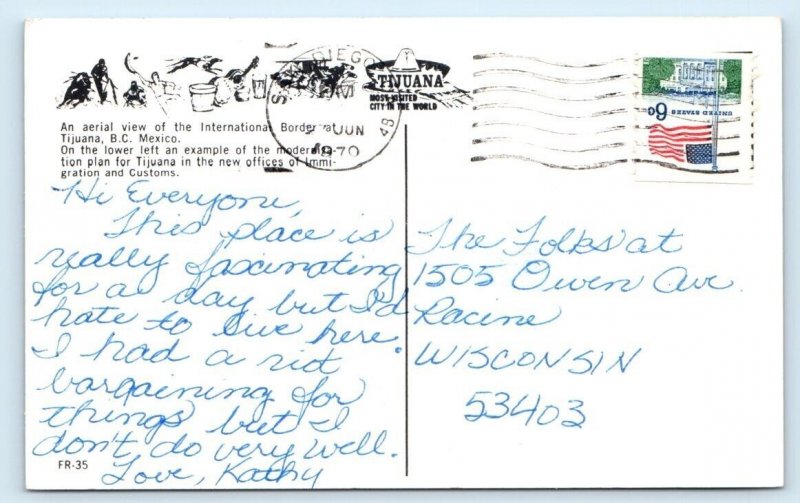 SAN DIEGO
PM
JUN
1970
TIJUANA
MOST VISITED
CITY IN THE WORLD
UNITED STATES
6c
An aerial view of the International Border at
Tijuana, B.C. Mexico.
On the lower left an example of the moderniza-
tion plan for Tijuana in the new offices of Immi-
gration and Customs.
Hi Everyone,
This place is
really fascinating
for a day but I'd
hate to live here.
I had a riot
bargaining for
things but I
don't do very well.
Love, Kathy
FR-35
The Folks at
1505 Owen Ave.
Racine
WISCONSIN
53403